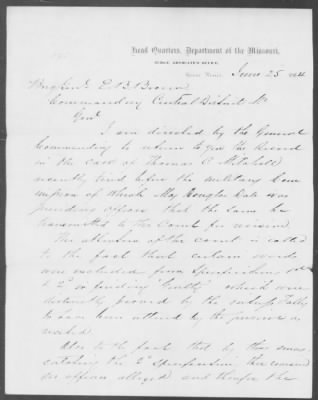 Head Quarters, Department of the Missouri,
JUDGE ADVOCATE'S OFFICE,
June 25
Brig Genl E. B. Brown
Commanding Central District Mo
Genl
I am directed by the General
Commanding to return to you the Record
in the case of Thomas C. Mitchell
recently tried before the Military Com
mission of which Maj Douglas Dale was
presiding officer that the same be
transmitted to the Court for revision.
The attention of the court is called
to the fact that certain words
were excluded from Specifications 1st
& 2d in finding "Guilty" which were
distinctly proved by the
to have been uttered by the prisoner as
Also to the fact that by thus
the 2d Specification there remained
no offence alleged and therefore the